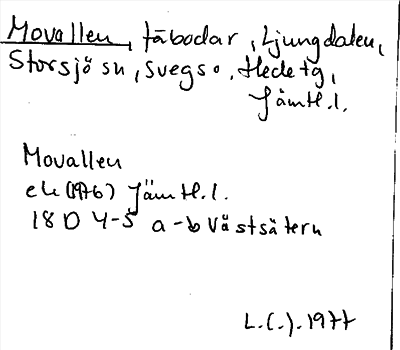 Movallen, fäbodar, Ljungdalen,
Storsjö sn, Svegs o, Hede tg,
Jämtl.l.
Movallen
ek (1976) Jämtl.l.
18 D 4-5 a-b Västsätern
L.(.).1977